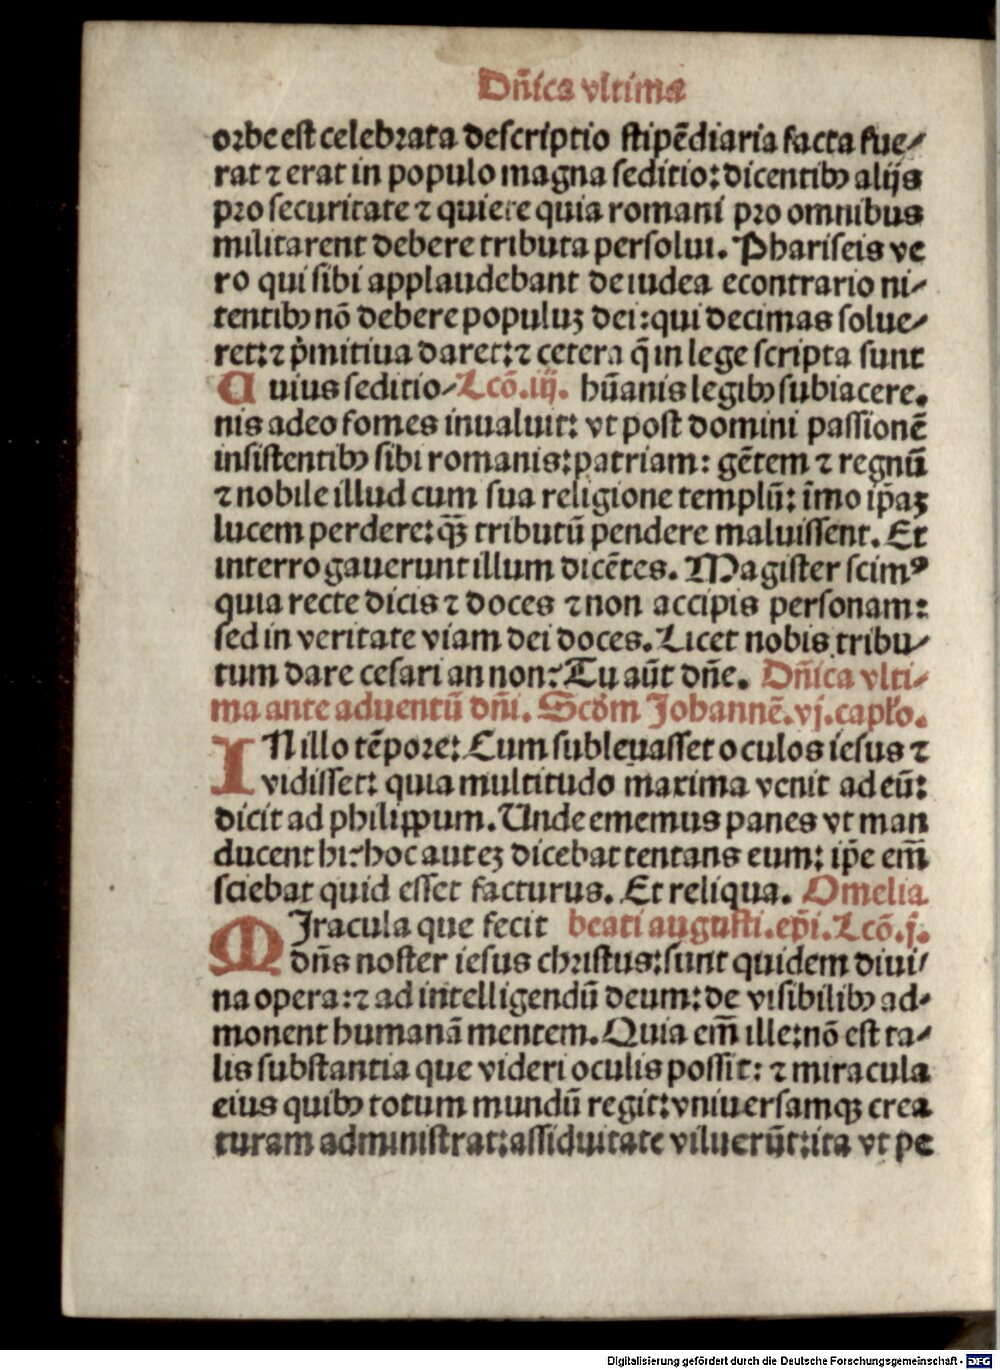 Dn̄ica vltima
orbe est celebrata descriptio stipēdiaria facta fue⸗
rat ⁊ erat in populo magna seditio: dicentibꝰ alijs
pro securitate ⁊ quiete quia romani pro omnibus
militarent debere tributa persolui. Phariseis ve
ro qui sibi applaudebant de iudea econtrario ni⸗
tentibꝰ nō debere populuꝫ dei: qui decimas solue⸗
ret: ⁊ p̄mitiua daret: ⁊ cetera q̄ in lege scripta sunt
C uius seditio⸗ Lcō. iij. hūanis legibꝰ subiacere.
nis adeo fomes inualuit: vt post domini passionē
insistentibꝰ sibi romanis: patriam: gētem ⁊ regnū
⁊ nobile illud cum sua religione templū: īmo ip̄aꝫ
lucem perdere: q̄ꝫ tributū pendere maluissent. Et
interrogauerunt illum dicētes. Magister scimꝰ
quia recte dicis ⁊ doces ⁊ non accipis personam:
sed in veritate viam dei doces. Licet nobis tribu⸗
tum dare cesari an non: Tu aūt dn̄e. Dn̄ica vlti⸗
ma ante aduentū dn̄i. Scd̄m Johannē. vj. capl̄o.
IN illo tēpore: Cum subleuasset oculos iesus ⁊
vidisset: quia multitudo maxima venit ad eū:
dicit ad philippum. Unde ememus panes vt man
ducent hi: hoc auteꝫ dicebat tentans eum: ip̄e em̄
sciebat quid esset facturus. Et reliqua. Omelia
MJracula que fecit beati augusti. ep̄i. Lcō. j.
dn̄s noster iesus christus: sunt quidem diui⸗
na opera: ⁊ ad intelligendū deum: de visibilibꝰ ad⸗
monent humanā mentem. Quia em̄ ille: nō est ta⸗
lis substantia que videri oculis possit: ⁊ miracula
eius quibꝰ totum mundū regit: vniuersamqꝫ crea
turam administrat: assiduitate viluerūt: ita vt pe
Digitalisierung gefördert durch die Deutsche Forschungsgemeinschaft - DFG